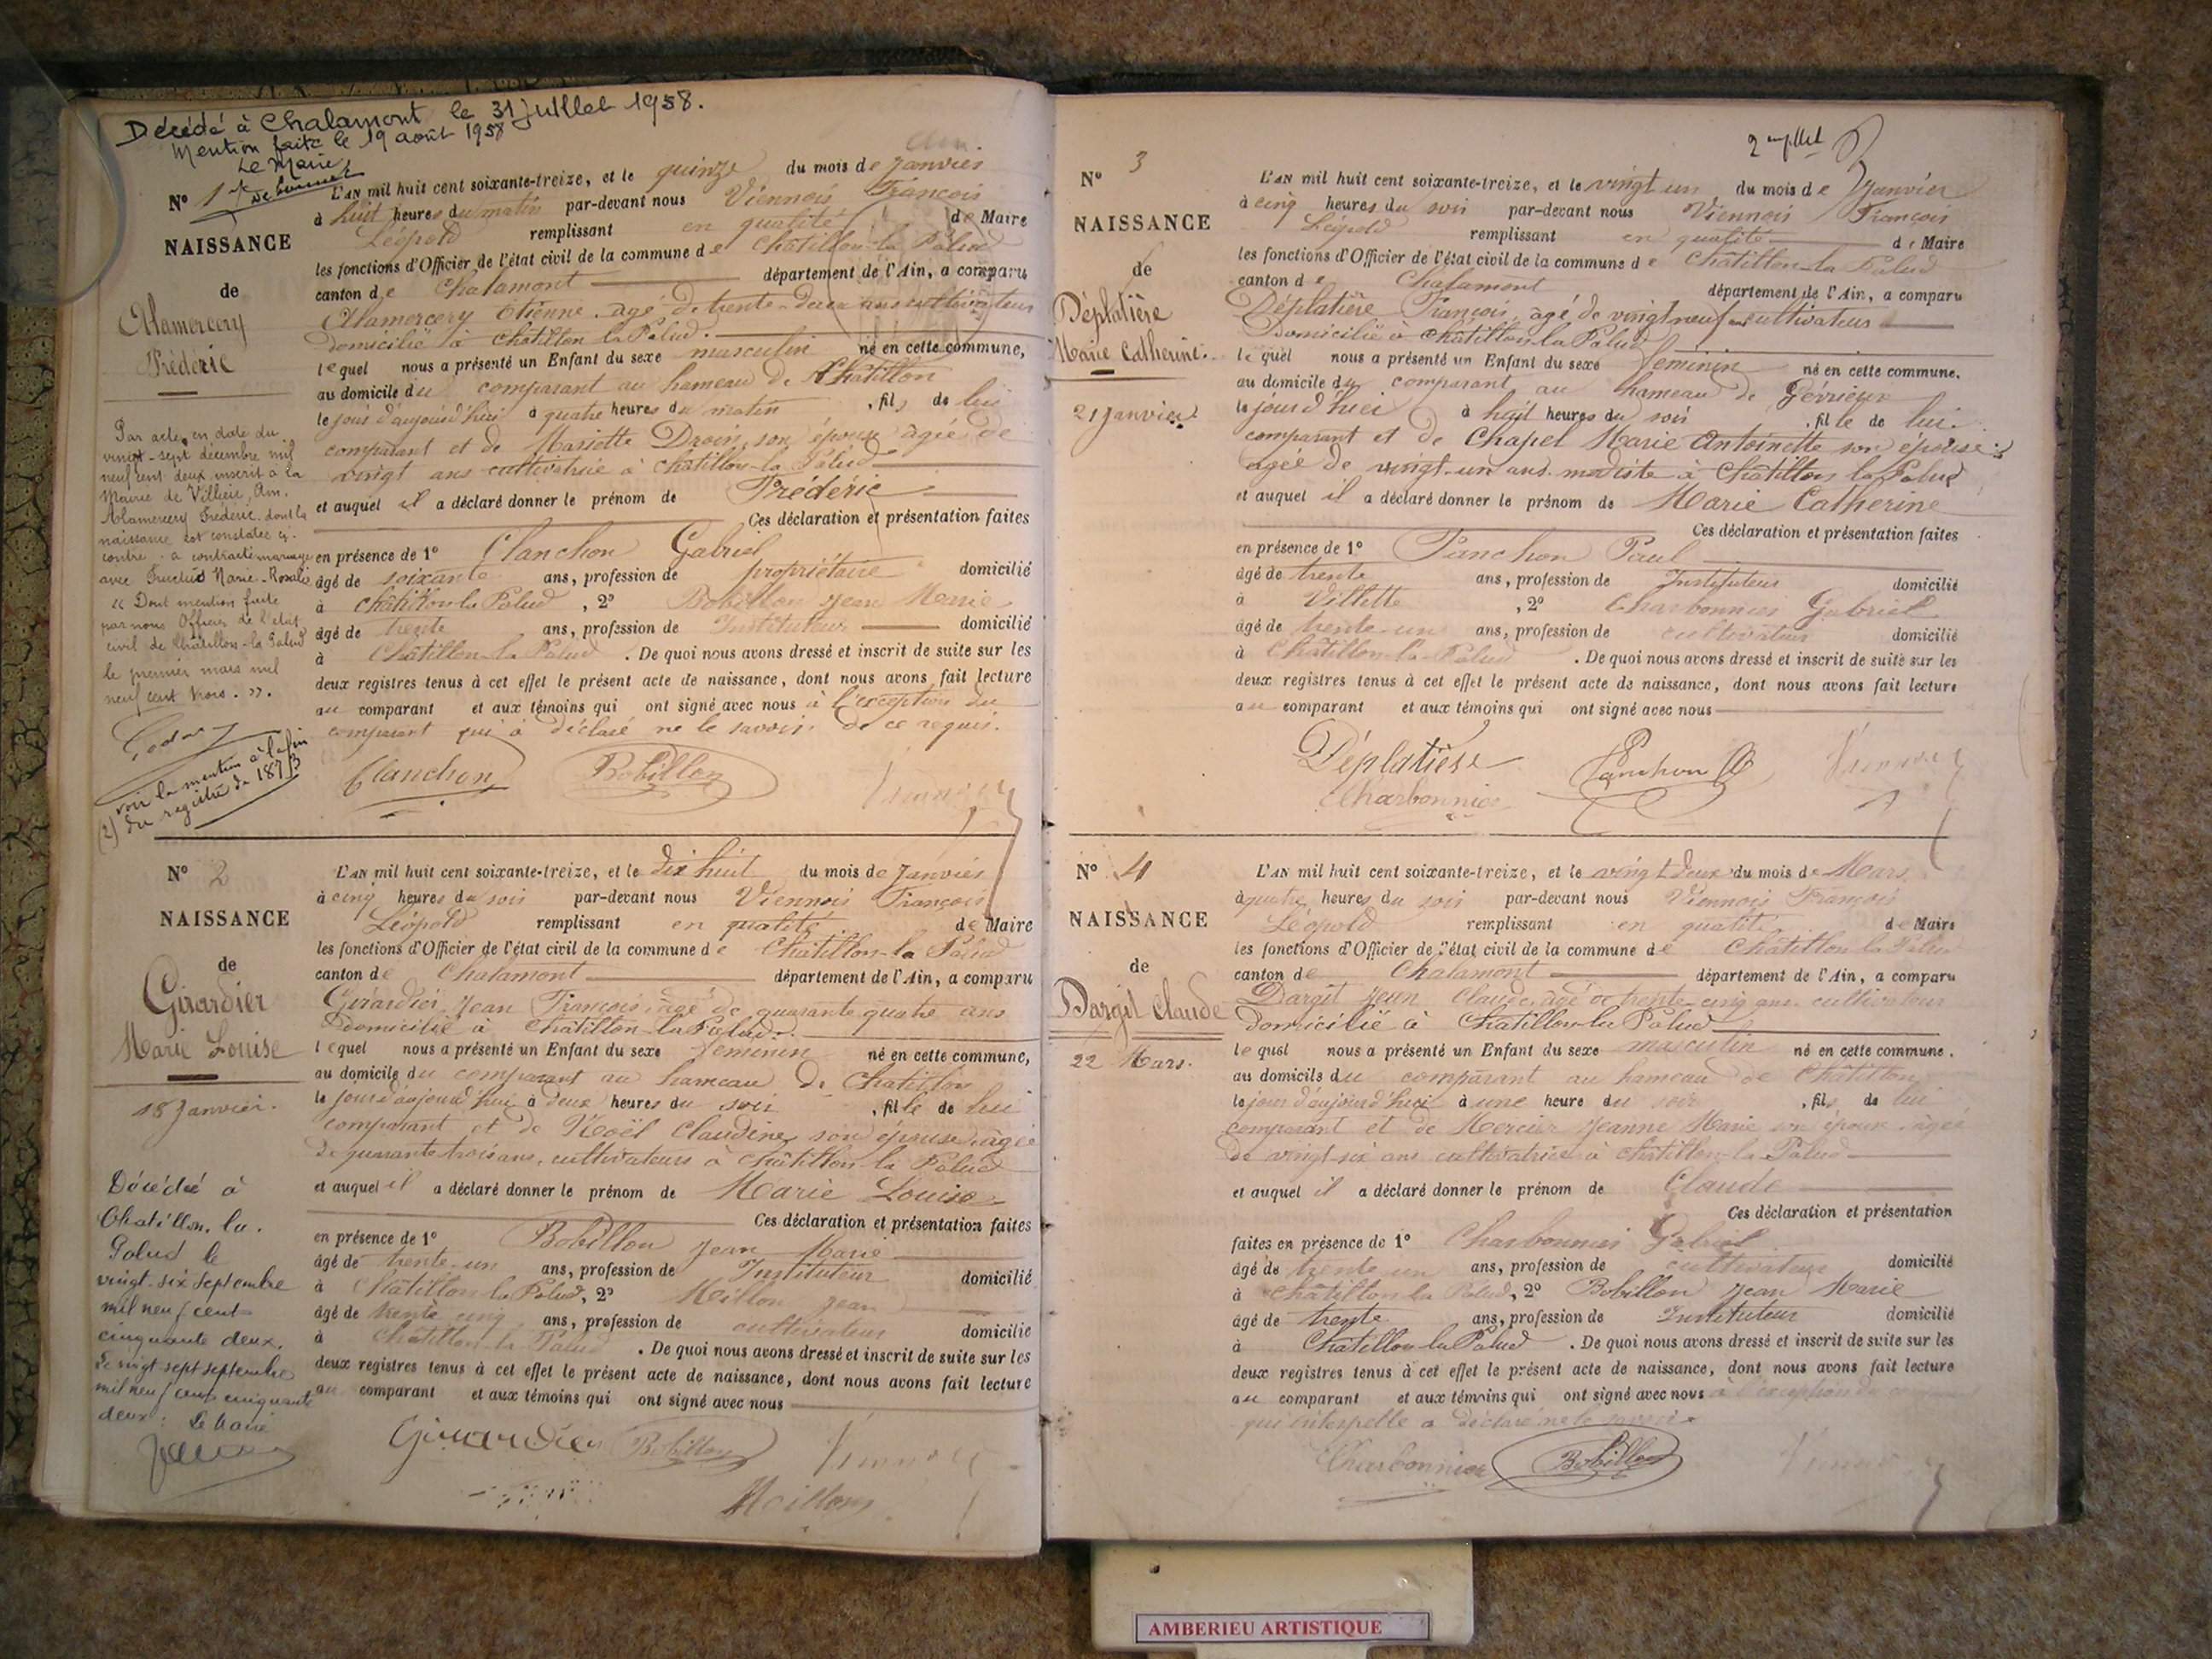 Décédé à Chalamont le 31 juillet 1958.
Mention faite le 19 août 1958
Le Maire
Nº 1
NAISSANCE
de
Alamercery
Frédéric
Par acte en date du
vingt-sept décembre mil
neuf cent deux inscrit à la
Mairie de Ain.
Alamercery Frédéric dont la
naissance est constatée ci-
contre a contracté mariage
avec Marie-Rosalie
« Dont mention faite
par nous Officier de l'état
civil de Châtillon-la-Palud
le premier mars mil
neuf cent trois. ».
voir la mention à la fin
(2) du registre de 1873
L'AN mil huit cent soixante-treize, et le quinze du mois de Janvier
à huit heures du matin par-devant nous Viennois François
Léopold remplissant en qualité de Maire
les fonctions d'Officier de l'état civil de la commune de Châtillon-la-Palud
canton de Chalamont département de l'Ain, a comparu
Alamercery Etienne, agé de trente-deux ans cultivateur
domicilié à Châtillon la Palud.
lequel nous a présenté un Enfant du sexe masculin né en cette commune,
au domicile du comparant au hameau de Châtillon
le jour d'aujourd'hui à quatre heures du matin , fils de lui
comparant et de Mariette Drevin, son épouse agée de
vingt ans cultivatrice à Châtillon-la-Palud
et auquel il a déclaré donner le prénom de Frédéric
Ces déclaration et présentation faites
en présence de 1º Clanchon Gabriel
âgé de soixante ans, profession de propriétaire domicilié
à Châtillon la Palud , 2º Bobillon Jean Marie
âgé de trente ans, profession de Instituteur domicilié
à Châtillon-la-Palud . De quoi nous avons dressé et inscrit de suite sur les
deux registres tenus à cet effet le présent acte de naissance, dont nous avons fait lecture
au comparant et aux témoins qui ont signé avec nous à l'exception du
comparant qui a déclaré ne le savoir de ce requis.
Clanchon Bobillon Viennois
Nº 2
NAISSANCE
de
Girardier
Marie Louise
18 Janvier.
Décédée à
Chatillon-la-
Palud le
vingt-six septembre
mil neuf cent
cinquante deux.
Le vingt sept septembre
mil neuf cent cinquante
deux : Le Maire
L'AN mil huit cent soixante-treize, et le dix huit du mois de Janvier
à cinq heures du soir par-devant nous Viennois François
Léopold remplissant en qualité de Maire
les fonctions d'Officier de l'état civil de la commune de Châtillon-la-Palud
canton de Chalamont département de l'Ain, a comparu
Girardier Jean François, agé de quarante quatre ans
domicilié à Châtillon-la-Palud.
lequel nous a présenté un Enfant du sexe feminin né en cette commune,
au domicile du comparant au hameau de Chatillon
le jour d'aujourd'hui à deux heures du soir , fille de lui
comparant et de Noël Claudine, son épouse, agée
de quarante trois ans, cultivateurs à Châtillon la Palud
et auquel il a déclaré donner le prénom de Marie Louise
Ces déclaration et présentation faites
en présence de 1º Bobillon Jean Marie
âgé de trente-un ans, profession de Instituteur domicilié
à Châtillon la Palud, 2º Meillon Jean
âgé de trente cinq ans, profession de cultivateur domicilié
à Châtillon-la-Palud . De quoi nous avons dressé et inscrit de suite sur les
deux registres tenus à cet effet le présent acte de naissance, dont nous avons fait lecture
au comparant et aux témoins qui ont signé avec nous
Girardier Bobillon Viennois
Meillon
2 juillet
Nº 3
NAISSANCE
de
Déplatière
Marie Catherine.
21 Janvier
L'AN mil huit cent soixante-treize, et le vingt un du mois de Janvier
à cinq heures du soir par-devant nous Viennois François
Léopold remplissant en qualité de Maire
les fonctions d'Officier de l'état civil de la commune de Châtillon-la-Palud
canton de Chalamont département de l'Ain, a comparu
Déplatière François, agé de vingt neuf ans cultivateur
Domicilié à Châtillon la Palud
lequel nous a présenté un Enfant du sexe feminin né en cette commune.
au domicile du comparant au hameau de Gévrieux
le jour d'hui à huit heures du soir , fille de lui
comparant et de Chapel Marie Antoinette son épouse
agée de vingt-un ans modiste à Châtillon la Palud
et auquel il a déclaré donner le prénom de Marie Catherine
Ces déclaration et présentation faites
en présence de 1º Panchon Paul
âgé de trente ans, profession de Instituteur domicilié
à Villette , 2º Charbonnier Gabriel
âgé de trente-un ans, profession de cultivateur domicilié
à Châtillon-la-Palud . De quoi nous avons dressé et inscrit de suite sur les
deux registres tenus à cet effet le présent acte de naissance, dont nous avons fait lecture
au comparant et aux témoins qui ont signé avec nous
Déplatière Panchon Viennois
Charbonnier
Nº 4
NAISSANCE
de
Dargit Claude
22 Mars.
L'AN mil huit cent soixante-treize, et le vingt deux du mois de Mars
à quatre heures du soir par-devant nous Viennois François
Léopold remplissant en qualité de Maire
les fonctions d'Officier de l'état civil de la commune de Châtillon la Palud
canton de Chalamont département de l'Ain, a comparu
Dargit Jean Claude, agé de trente-cinq ans cultivateur
domicilié à Châtillon-la-Palud
lequel nous a présenté un Enfant du sexe masculin né en cette commune.
au domicile du comparant au hameau de Châtillon
le jour d'aujourd'hui à une heure du soir , fils de lui
comparant et de Mercier Jeanne Marie son épouse agée
de vingt-six ans cultivatrice à Châtillon-la-Palud
et auquel il a déclaré donner le prénom de Claude
Ces déclaration et présentation
faites en présence de 1º Charbonnier Gabriel
âgé de trente un ans, profession de cultivateur domicilié
à Châtillon la Palud, 2º Bobillon Jean Marie
âgé de trente ans, profession de Instituteur domicilié
à Châtillon la Palud . De quoi nous avons dressé et inscrit de suite sur les
deux registres tenus à cet effet le présent acte de naissance, dont nous avons fait lecture
au comparant et aux témoins qui ont signé avec nous à l'exception du
qui interpellé a déclaré ne le savoir
Charbonnier Bobillon Viennois
AMBERIEU ARTISTIQUE